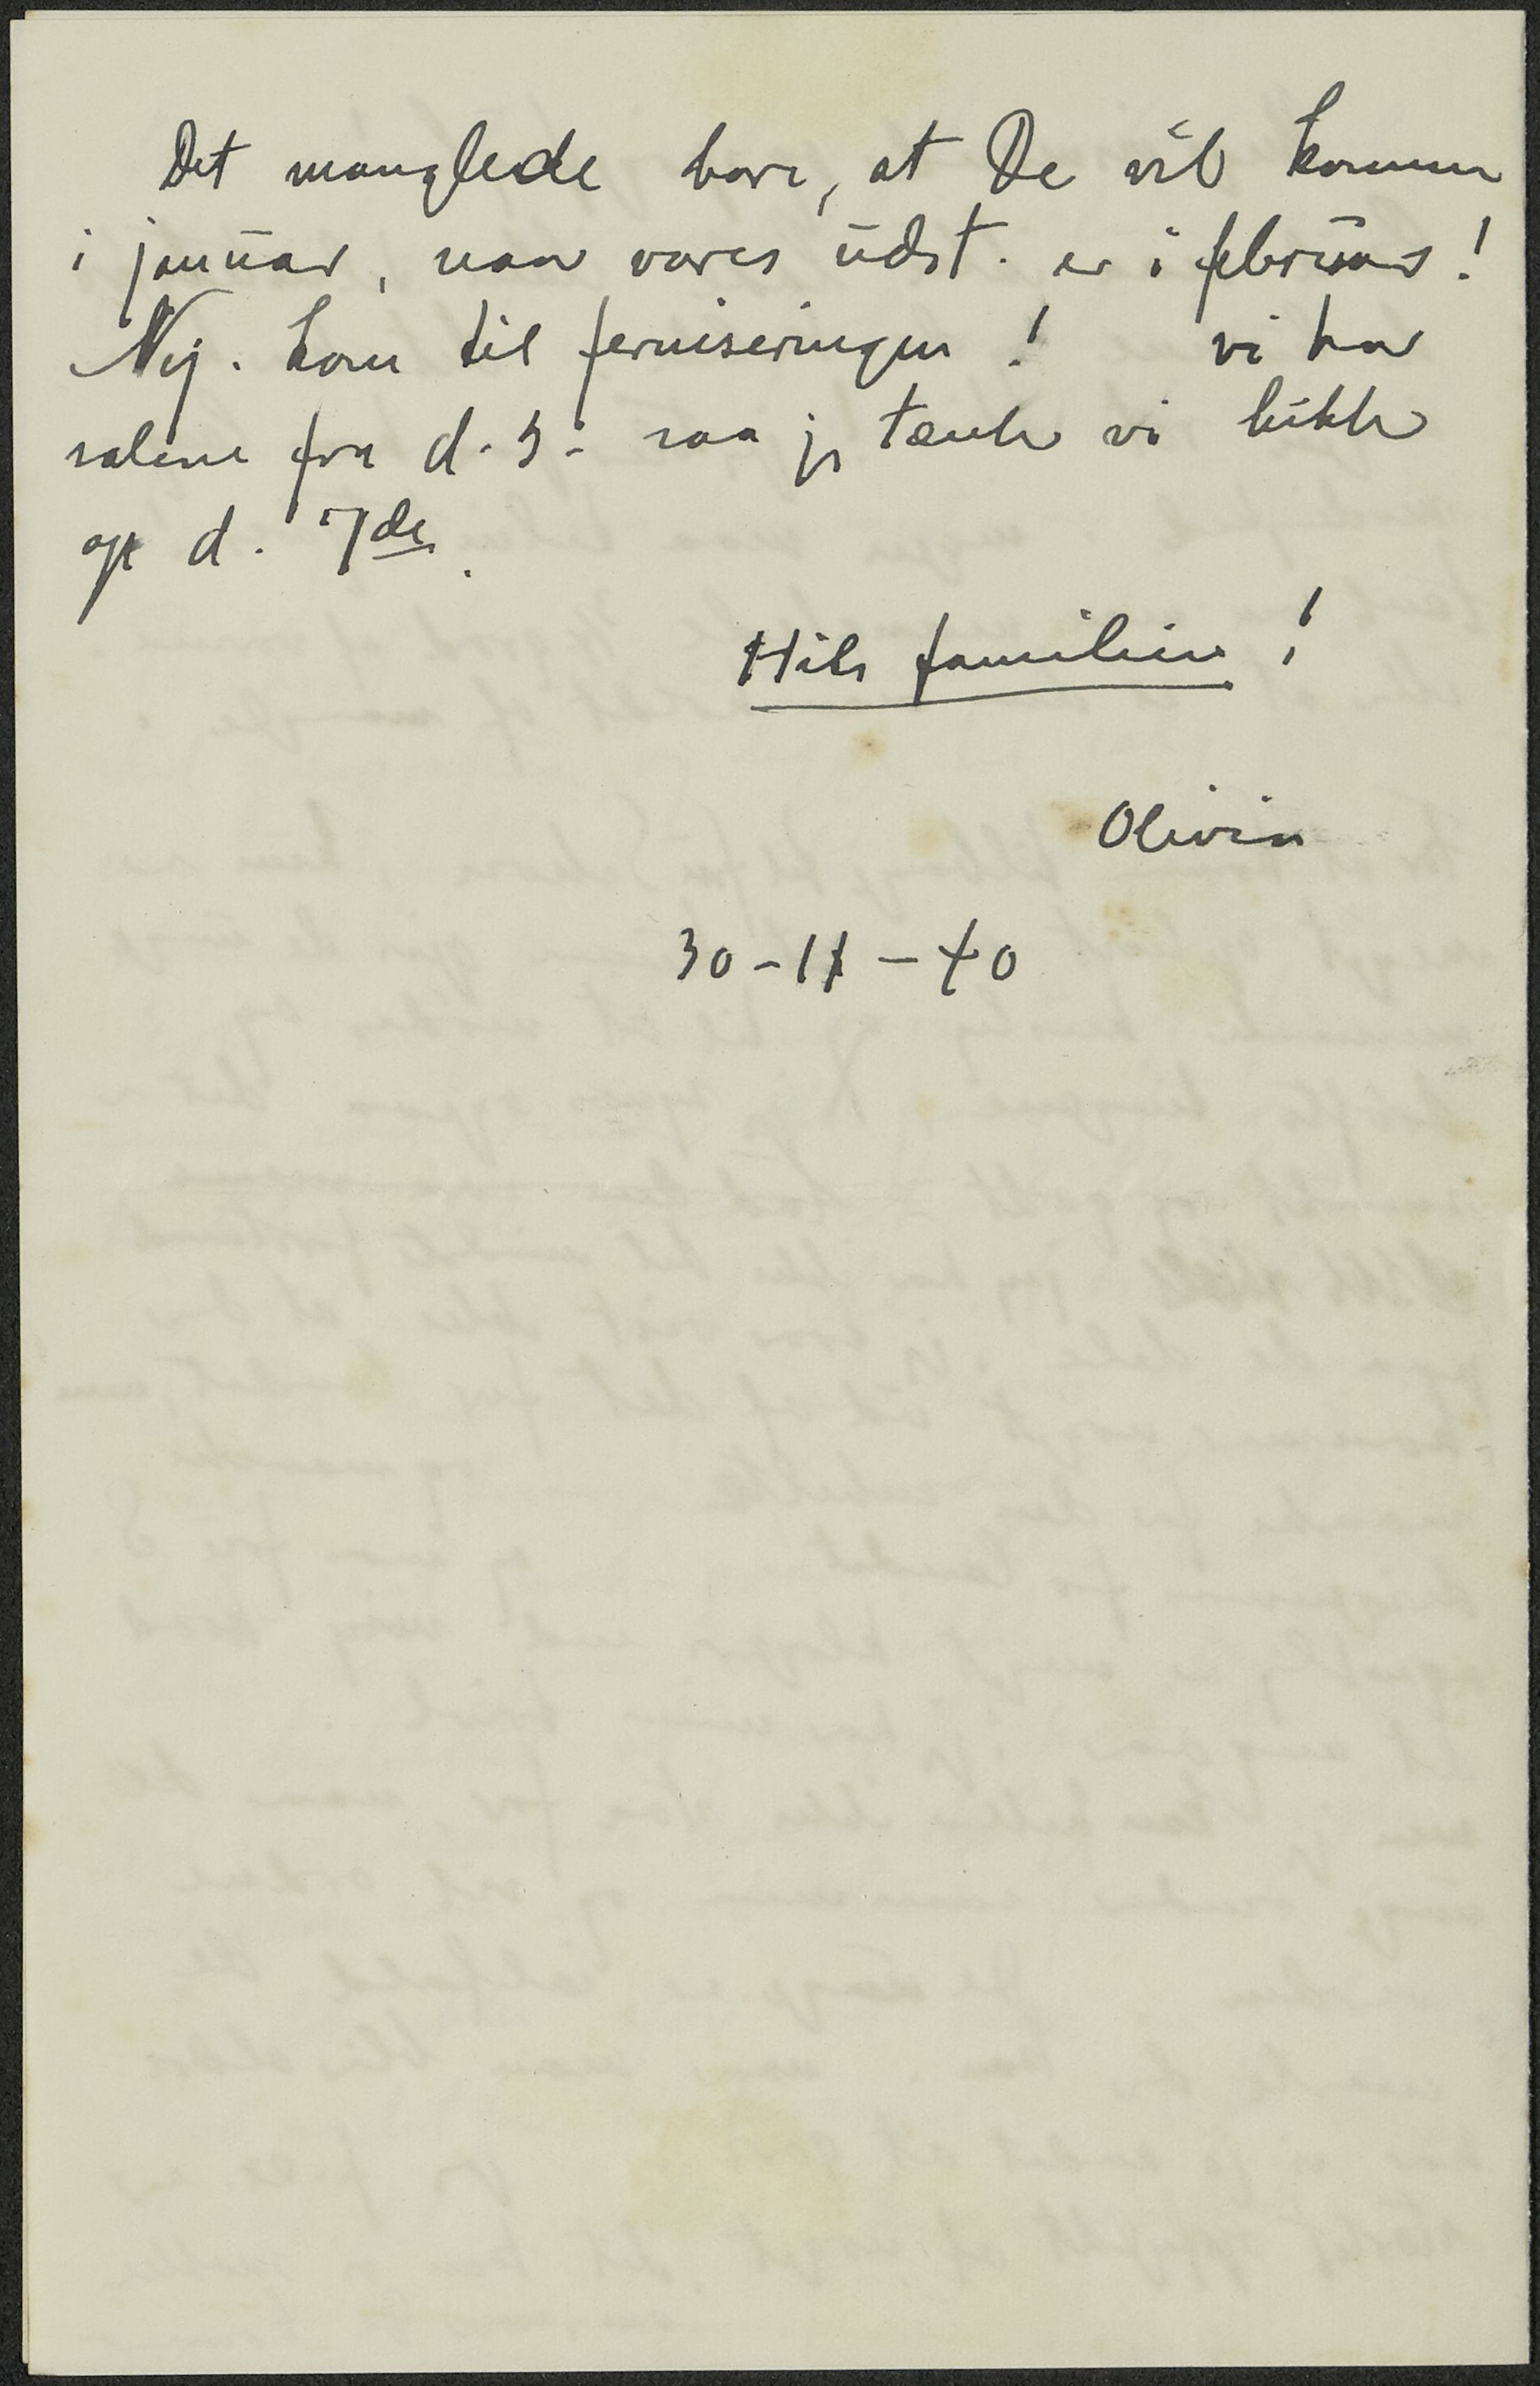 Det manglede bare, at De vil komme
i januar, naar vores udst. er i februar!
Nej. kom til ferniseringen! vi har
salene fra d. 3. saa jeg tænker vi lukker
op d. 7de.
Hils familien!
Olivia
30-11-40